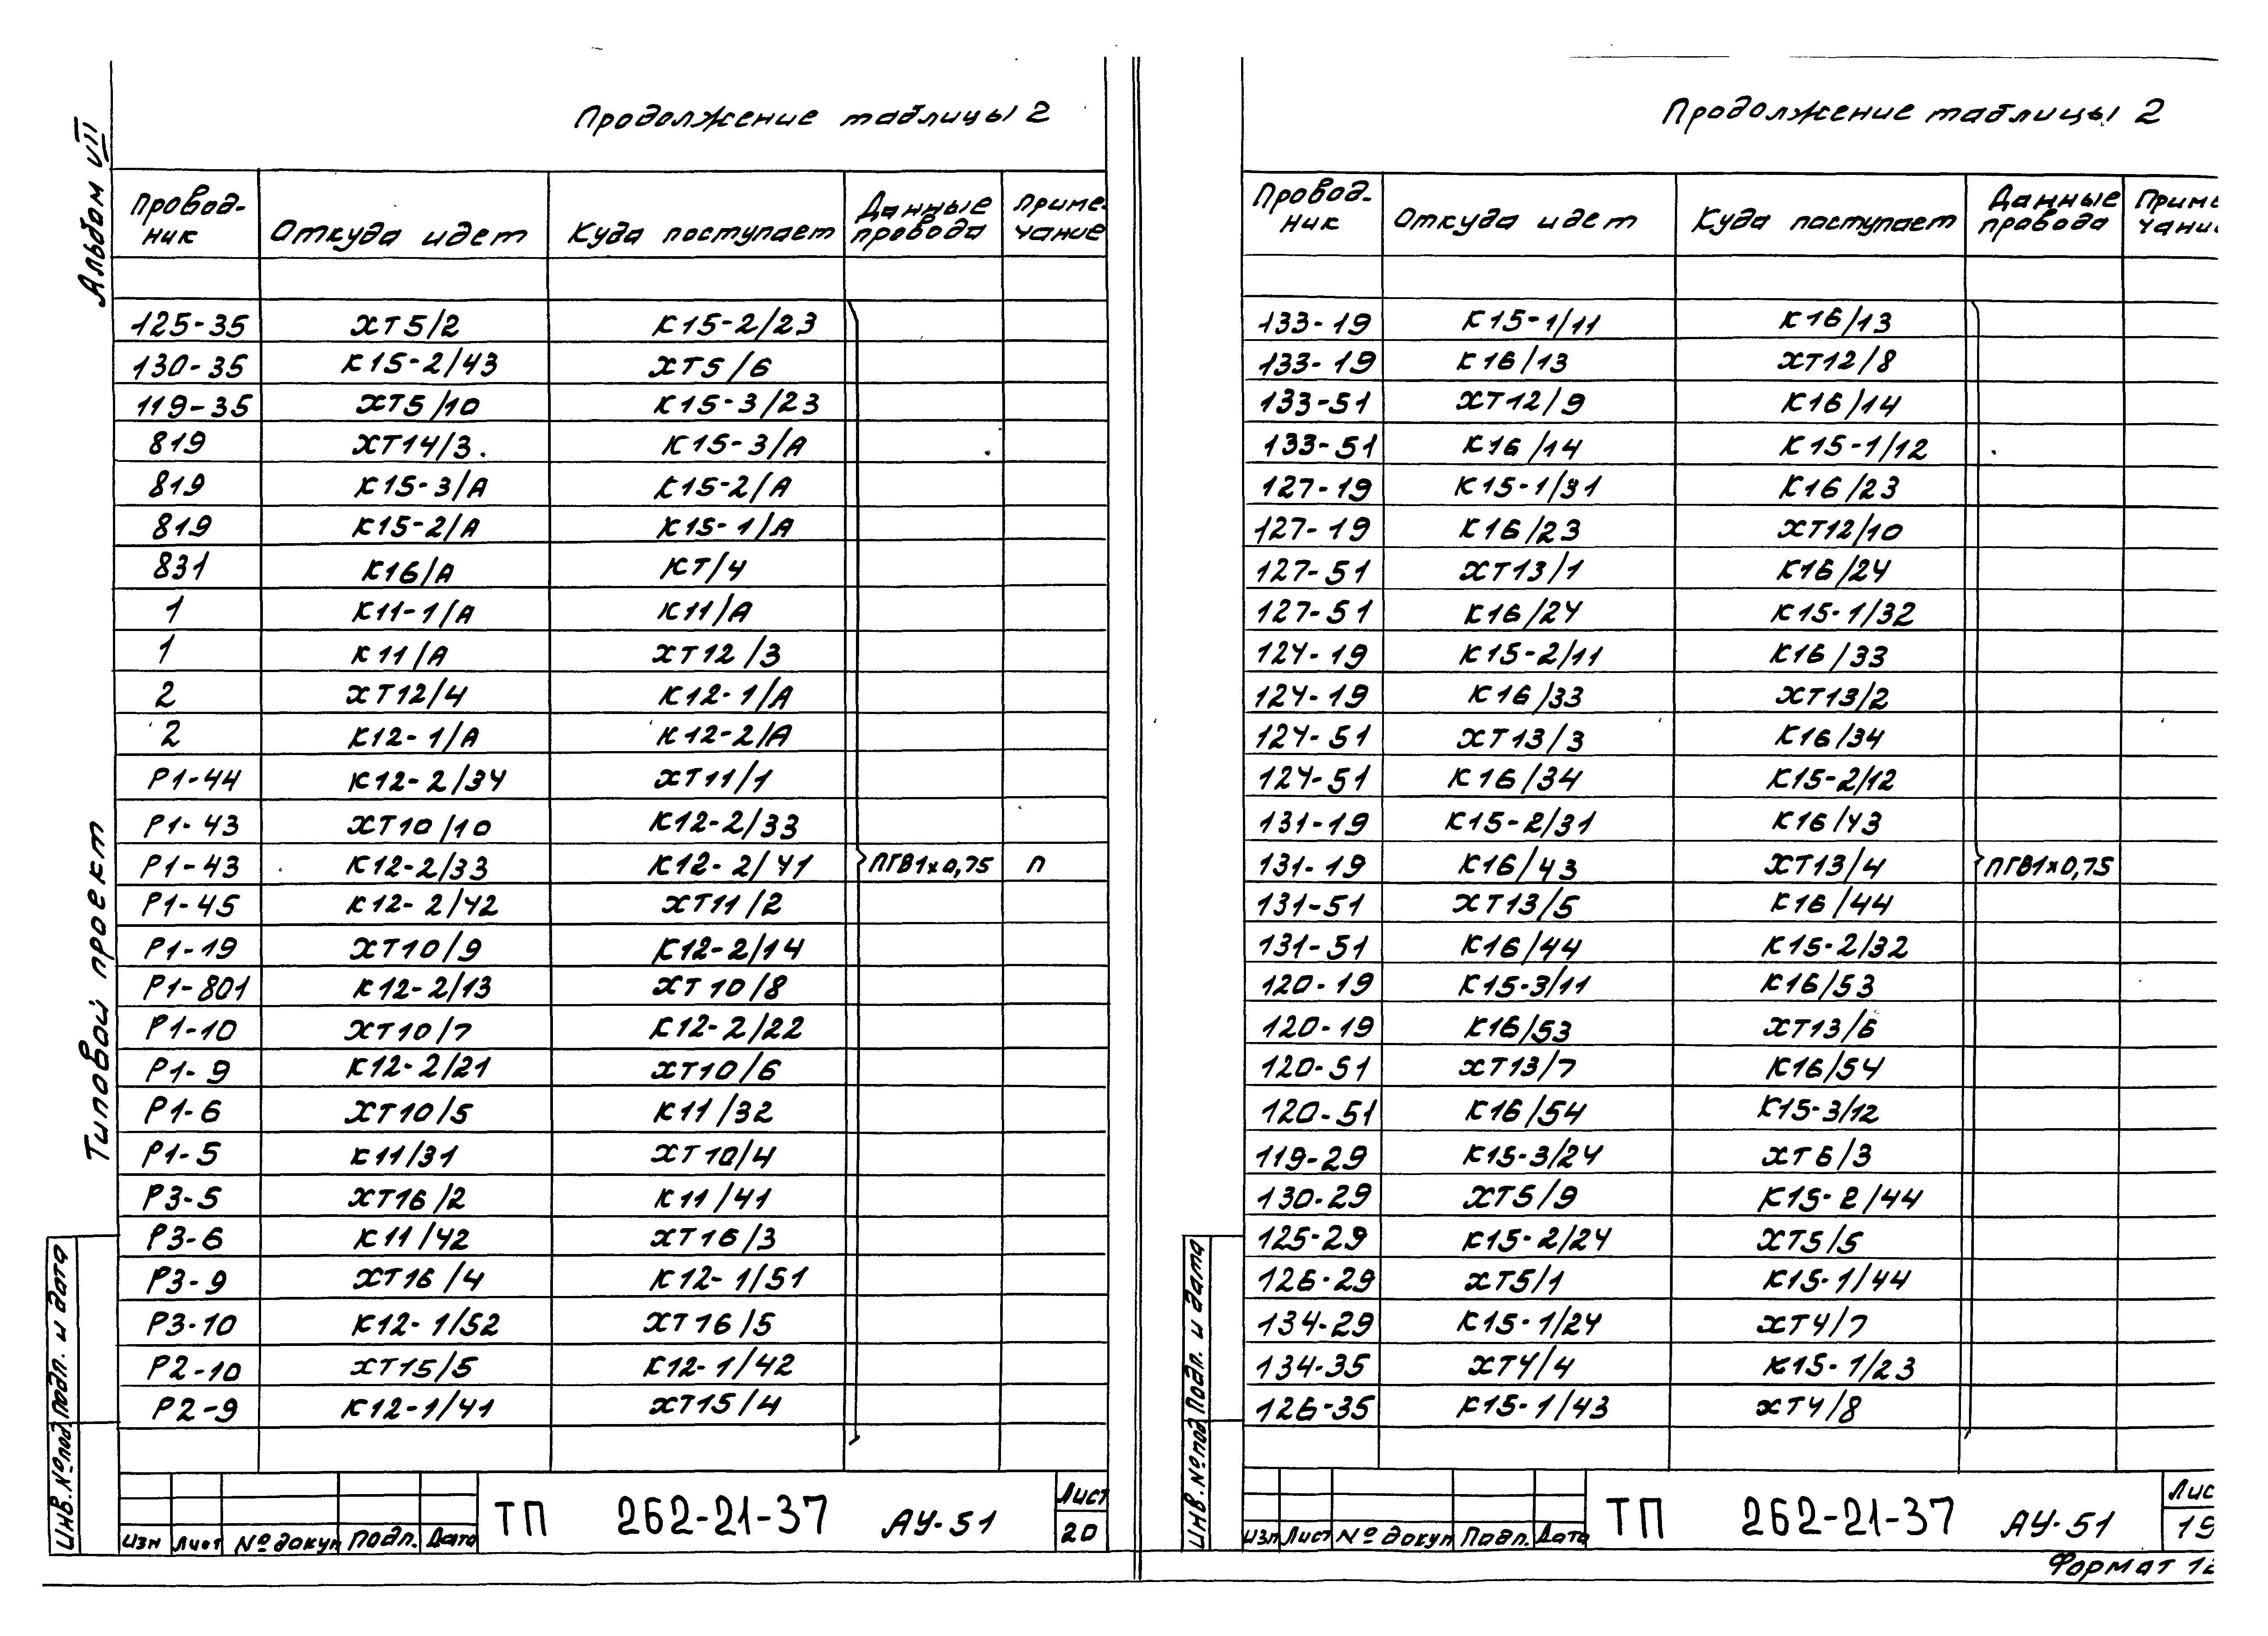 Альбом VII
Типовой проект
Продолжение таблицы 2
Провод-ник Откуда идет Куда поступает Данные провода Приме-чание
125-35 ХТ5/2 К15-2/23
130-35 К15-2/43 ХТ5/6
119-35 ХТ5/10 К15-3/23
819 ХТ14/3. К15-3/А
819 К15-3/А К15-2/А
819 К15-2/А К15-1/А
831 К16/А КТ/4
1 К11-1/А К11/А
1 К11/А ХТ12/3
2 ХТ12/4 К12-1/А
2 К12-1/А К12-2/А
Р1-44 К12-2/34 ХТ11/1
Р1-43 ХТ10/10 К12-2/33
Р1-43 К12-2/33 К12-2/41 ПГВ1х0,75 П
Р1-45 К12-2/42 ХТ11/2
Р1-19 ХТ10/9 К12-2/14
Р1-801 К12-2/13 ХТ10/8
Р1-10 ХТ10/7 К12-2/22
Р1-9 К12-2/21 ХТ10/6
Р1-6 ХТ10/5 К11/32
Р1-5 К11/31 ХТ10/4
Р3-5 ХТ16/2 К11/41
Р3-6 К11/42 ХТ16/3
Р3-9 ХТ16/4 К12-1/51
Р3-10 К12-1/52 ХТ16/5
Р2-10 ХТ15/5 К12-1/42
Р2-9 К12-1/41 ХТ15/4
Инв.№под Подп. и дата
Изм Лист № докум Подп. Дата
ТП 262-21-37 АУ-51
Лист
20
Продолжение таблицы 2
Провод-ник Откуда идет Куда поступает Данные провода Приме чани
133-19 К15-1/11 К16/13
133-19 К16/13 ХТ12/8
133-51 ХТ12/9 К16/14
133-51 К16/14 К15-1/12
127-19 К15-1/31 К16/23
127-19 К16/23 ХТ12/10
127-51 ХТ13/1 К16/24
127-51 К16/24 К15-1/32
124-19 К15-2/11 К16/33
124-19 К16/33 ХТ13/2
124-51 ХТ13/3 К16/34
124-51 К16/34 К15-2/12
131-19 К15-2/31 К16/43
131-19 К16/43 ХТ13/4 ПГВ1х0,75
131-51 ХТ13/5 К16/44
131-51 К16/44 К15-2/32
120-19 К15-3/11 К16/53
120-19 К16/53 ХТ13/6
120-51 ХТ13/7 К16/54
120-51 К16/54 К15-3/12
119-29 К15-3/24 ХТ6/3
130-29 ХТ5/9 К15-2/44
125-29 К15-2/24 ХТ5/5
126-29 ХТ5/1 К15-1/44
134-29 К15-1/24 ХТ4/7
134-35 ХТ4/4 К15-1/23
126-35 К15-1/43 ХТ4/8
Инв.№под Подп. и дата
Изм Лист № докум Подп. Дата
ТП 262-21-37 АУ-51
Лис
19
Формат 12